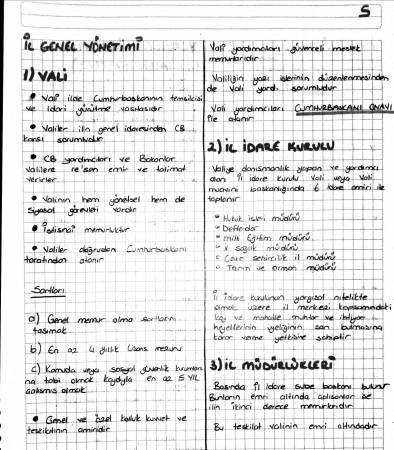 5
İL GENEL YÖNETİMİ
1) VALİ
• Vali ilde Cumhurbaşkanının temsilcisi
ve idari yürütme vasıtasıdır
• Valiler ilin genel idaresinden CB
karşı sorumludur
• CB yardımcıları ve Bakanlar
valilere re'sen emir ve talimat
verirler
• Valinin hem yönetsel hem de
siyasal görevleri vardır
• İstisnai memurluktur
• Valiler doğrudan Cumhurbaşkanı
tarafından atanır
Şartları
a) Genel memur olma şartlarını
taşımak
b) En az 4 yıllık lisans mezunu
c) Kamuda veya sosyal güvenlik kurumları
na tabi olmak kaydıyla en az 5 YIL
çalışmış olmak
• Genel ve özel kolluk kuvvet ve
teşkilatının amiridir
Vali yardımcıları güvenceli meslek
memurlarıdır
Valiliğin yazı işlerinin düzenlenmesinden
de Vali yardı. sorumludur
Vali yardımcıları CUMHURBAŞKANI ONAYI
ile atanır
2) İL İDARE KURULU
Valiye danışmanlık yapan ve yardımcı
olan İl İdare Kurulu Vali veya Vali
muavini başkanlığında 6 idare amiri ile
toplanır
Hukuk işleri müdürü
Defterdar
Milli Eğitim müdürü
İl sağlık müdürü
Çevre şehircilik il müdürü
Tarım ve orman müdürü
İl idare kurulunun yargısal nitelikte
olmak üzere il merkezi kapsamındaki
köy ve mahalle muhtar ve ihtiyar
heyetlerinin üyeliğinin son bulmasına
karar verme yetkisine sahiptir
3) İL MÜDÜRLÜKLERİ
Başında İl idare şube başkanı bulunur
Bunların emri altında çalışanlar ise
ilin ikinci derece memurlarıdır
Bu teşkilat valinin emri altındadır